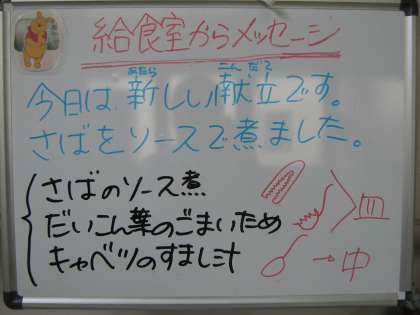 給食室からメッセージ
今日は新しい献立です。
さばをソースで煮ました。
さばのソース煮
だいこん葉のごまいため
キャベツのすまし汁
皿
→中